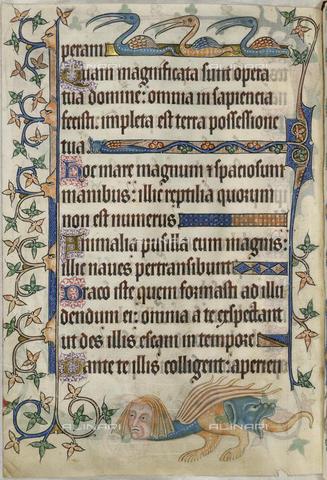 peram
Quam magnificata sunt opera
tua domine: omnia in sapiencia
fecisti: impleta est terra possessione
tua
Hoc mare magnum & spaciosum
manibus: illic reptilia quorum
non est numerus
Animalia pusilla cum magnis:
illic naues pertransibunt
Draco iste quem formasti ad illu
dendum ei: omnia a te exspectant
ut des illis escam in tempore
Dante te illis colligent: aperien
ALINARI
ALINARI